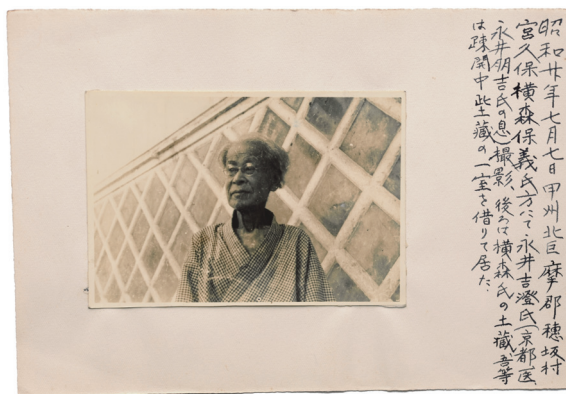 昭和廿年七月七日甲州北巨摩郡穂坂村
宮久保横森保義氏方にて永井吉澄氏(京都医
永井明吉氏の息)撮影、後ろは横森氏の土蔵吾等
は疎開中此土蔵の一室を借りて居た.